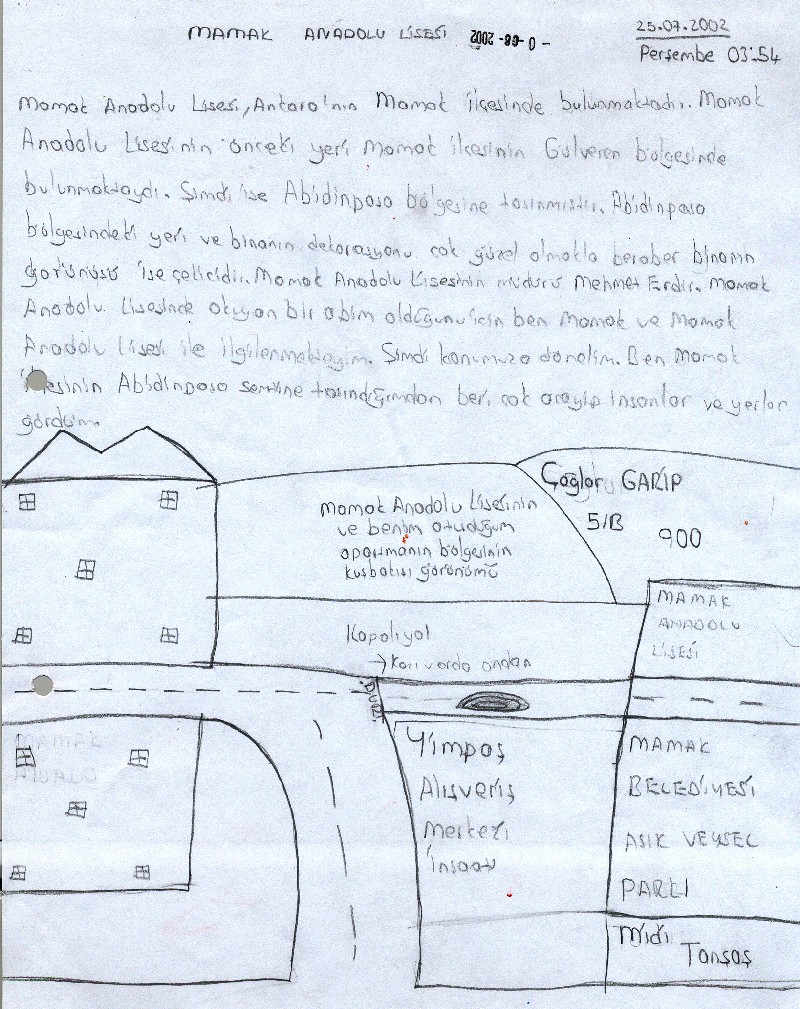 MAMAK ANADOLU LİSESİ
- 0 -08- 2002
25.07.2002
Perşembe 03:54
Mamak Anadolu Lisesi, Ankara'nın Mamak ilçesinde bulunmaktadır. Mamak
Anadolu Lisesinin önceki yeri Mamak ilçesinin Gülveren bölgesinde
bulunmaktaydı. Şimdi ise Abidinpaşa bölgesine taşınmıştır. Abidinpaşa
bölgesindeki yeri ve binanın dekorasyonu çok güzel olmakla beraber binanın
görünüşü ise çekicidir. Mamak Anadolu Lisesinin müdürü Mehmet Erdir. Mamak
Anadolu Lisesinde okuyan bir abim olduğunu için ben Mamak ve Mamak
Anadolu Lisesi ile ilgilenmekteyim. Şimdi konumuza dönelim. Ben Mamak
ilçesinin Abidinpaşa semtine taşındığımdan beri çok arayıp insanlar ve yerler
gördüm.
Çağlar GARİP
5/B
900
Mamak Anadolu Lisesinin
ve benim oturduğum
apartmanın bölgesinin
kuşbakışı görünümü
MAMAK
ANADOLU
LİSESİ
Kapalıyol
Yimpaş
Alışveriş
Merkezi
İnşaatı
MAMAK
BELEDİYESİ
AŞIK VEYSEL
PARKI
Midi
Tansaş